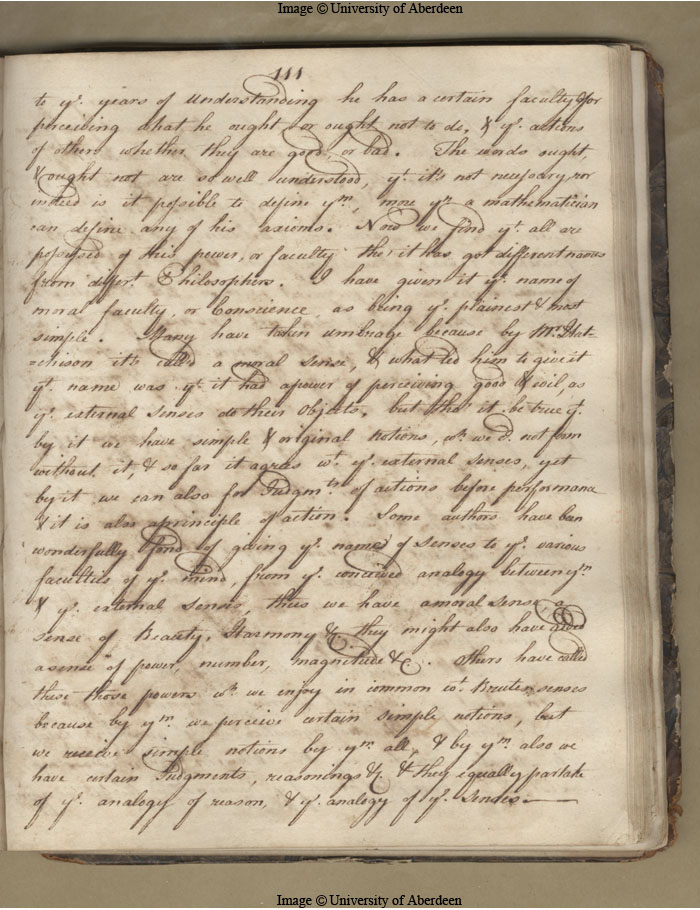 Image © University of Aberdeen
111
to yr. years of understanding he has a certain faculty for
perceiving what he ought or ought not to do, & yr. actions
of others whether they are good, or bad. The words ought,
& ought not are so well understood, yt. it's not necessary, nor
indeed is it possible to define ym., more yn. a mathematician
can define any of his axioms. Now we find yt. all are
possessed of this power, or faculty tho' it has got different names
from differt. Philosophers. I have given it ye. name of
moral faculty, or Conscience, as being ye. plainest & most
simple. Many have taken umbrage because by Mr. Hut-
=chison it's called a moral sense, & what led him to give it
yt. name was yt. it had a power of perceiving good & evil, as
ye. external senses do their Objects, but tho' it be true yt.
by it we have simple & original Notions, wh. we cd. not form
without it, & so far it agrees wt. ye. external senses, yet
by it we can also for Judgmts. of actions before performance
& it is also a principle of action. Some authors have been
wonderfully fond of giving ye. name of senses to ye. various
faculties of ye. mind, from ye. conceived analogy between ym.
& ye. external senses, thus we have a moral sense, a
sense of Beauty, Harmony &c. they might also have given
a sense of power, number, magnitude &c. Others have called
these those powers wh. we enjoy in common wt. Brutes senses
because by ym. we perceive certain simple notions, but
we receive simple notions by ym. all, & by ym. also we
have certain Judgments, reasonings &c. & they equally partake
of ye. analogy of reason, & ye. analogy of ye. senses.
Image © University of Aberdeen